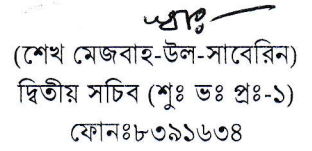 (শেখ মেজবাহ-উল-সাবেরিন)
দ্বিতীয় সচিব (শুঃ ভঃ প্রঃ-১)
ফোনঃ৮৩৯১৬৩৪